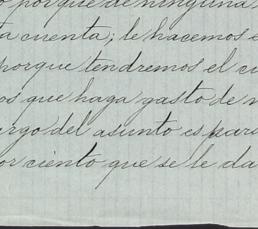 porque de ninguna
ta cuenta; le hacemos e
porque tendremos el cu
os que haga gasto de n
argo del asunto es para
or ciento que se le da